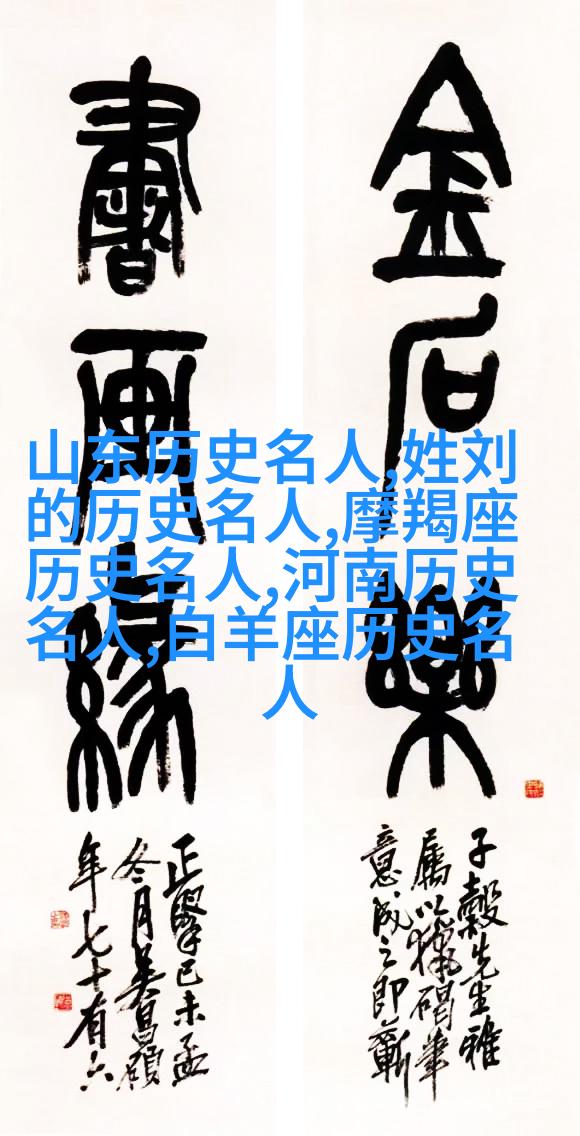 金石樂
子穀先生雅
屬以獵碣筆
意成之即蘄
書畫緣
正己未孟
冬月吳昌碩
年七十有六
山东历史名人,姓刘
的历史名人,摩羯座
历史名人,河南历史
名人,白羊座历史名
人